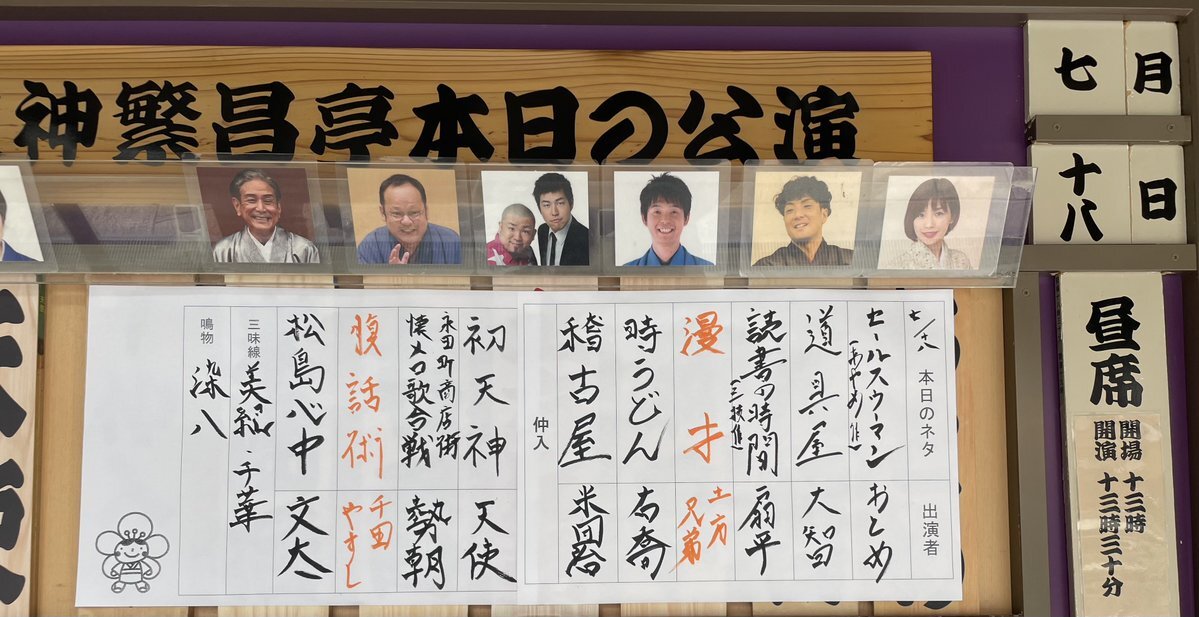 神繁昌亭本日の公演
七月
十八日
昼席
開場 十三時
開演 十三時三十分
七/十八 本日のネタ 出演者
セールスウーマン(あやめ作) おとめ
道具屋 大智
読書の時間(三枝作) 扇平
漫才 土方兄弟
時うどん 右喬
稽古屋 米団治
仲入
初天神 天使
永田町商店街懐メロ歌合戦 勢朝
腹話術 千田やすし
松島心中 文太
三味線 美紹・千華
鳴物 染八